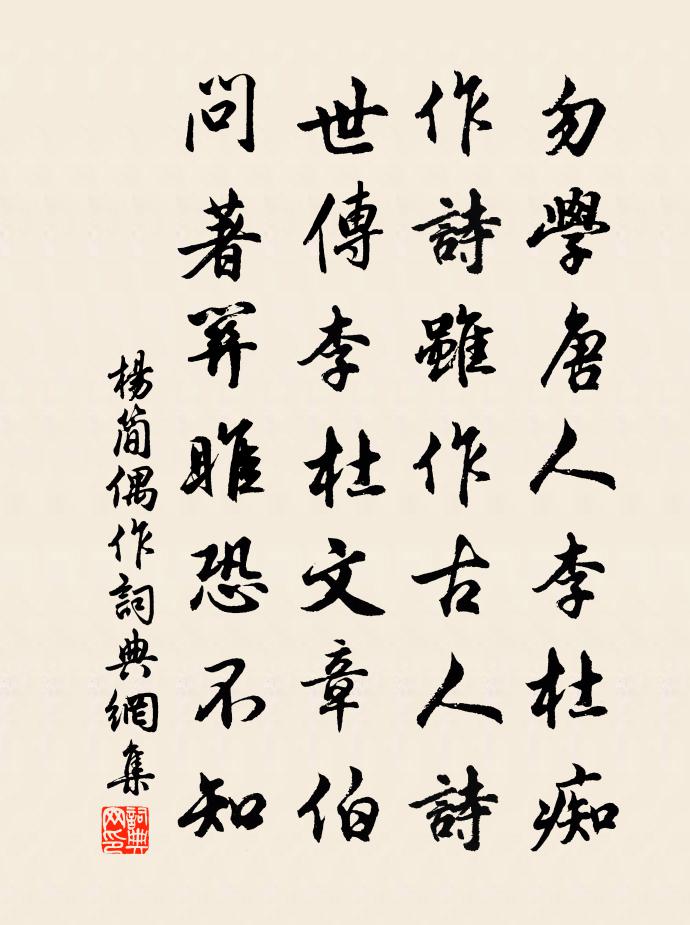 勿學唐人李杜痴
作詩雖作古人詩
世傳李杜文章伯
問著關雎恐不知
楊簡偶作詞典網集
詞典網印